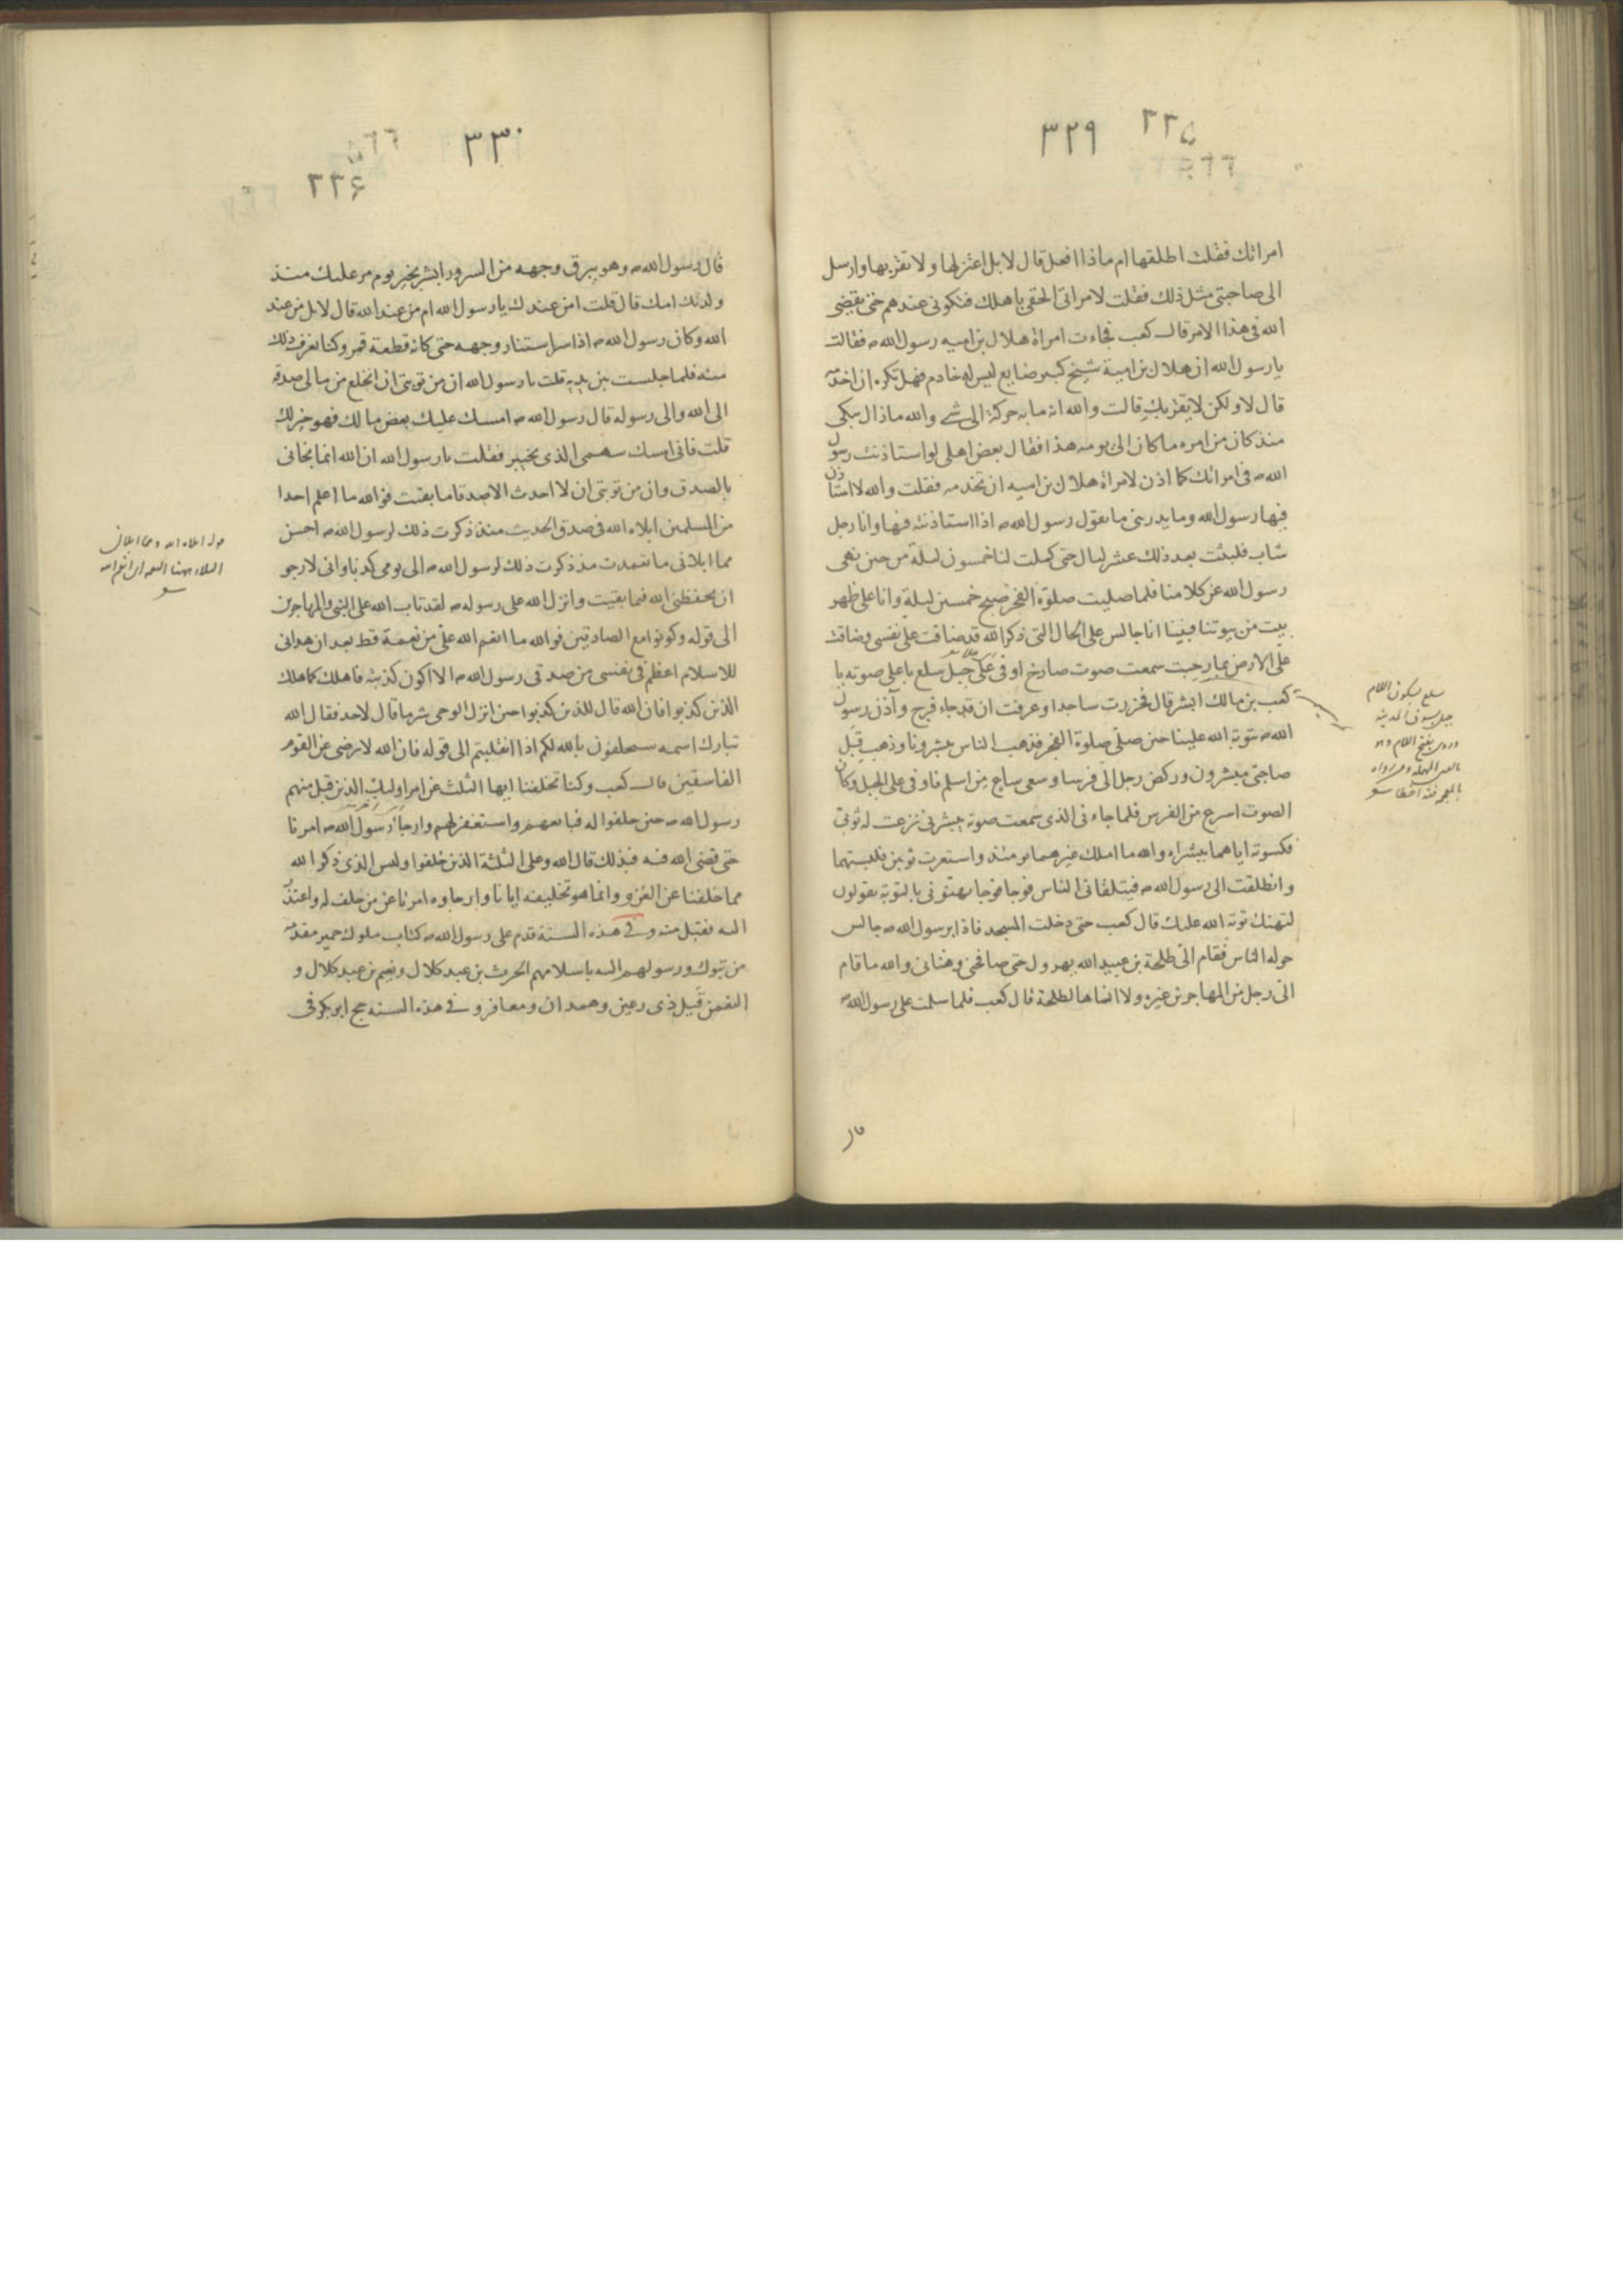 ٣٢٩
٢٢٥
امراتك فقلت اطلقها ام ماذا افعل قال لا بل اعتزلها ولا تقربها وارسل
الى صاحبى مثل ذلك فقلت لامراتى الحقى باهلك فتكونى عندهم حتى يقضى
الله فى هذا الامر قال كعب فجاءت امراة هلال بن اميه رسول الله ص فقالت
يا رسول الله ان هلال بن امية شيخ كبير ضايع ليس له خادم فهل تكره ان اخدمه
قال لا ولكن لا يقربك قالت والله انه ما به حركة الى شے والله ماذال يبكى
منذ كان من امره ما كان الى يومه هذا فقال بعض اهلى لو استاذنت رسول
الله ص فى امراتك كما اذن لامراة هلال بن اميه ان تخدمه فقلت والله لا استاذن
فيها رسول الله وما يدرينى ما يقول رسول الله ص اذا استاذنته فيها وانا رجل
شاب فلبثت بعد ذلك عشر ليال حتى كملت لنا خمسون ليلة من حين نهى
رسول الله عن كلامنا فلما صليت صلوة الفجر صبح خمسين ليلة وانا على ظهر
بيت من بيوتنا فبينا انا جالس على الحال التى ذكر الله قد ضاقت على نفسى وضاقت
على الارض بما رحبت سمعت صوت صارخ اوفى على جبل سلع باعلى صوته يا
كعب بن مالك ابشر قال فخررت ساجدا وعرفت ان قد جاء فرج وآذن رسول
الله ص بتوبة الله علينا حين صلى صلوة الفجر فذهب الناس يبشروننا وذهب قبل
صاحبى مبشرون وركض رجل الى فرسا وسعى ساع من اسلم فاوفى على الجبل وكان
الصوت اسرع من الفرس فلما جاءنى الذى سمعت صوته يبشرنى نزعت له ثوبى
فكسوته اياهما ببشراه والله ما املك غيرهما يومئذ واستعرت ثوبين فلبستهما
وانطلقت الى رسول الله ص فيتلقانى الناس فوجا فوجا يهنئونى بالتوبة يقولون
لتهنك توبة الله عليك قال كعب حتى دخلت المسجد فاذا برسول الله ص جالس
حوله الناس فقام الى طلحة بن عبيد الله يهرول حتى صافحنى وهنانى والله ما قام
الى رجل من المهاجرين غيره ولا انساها لطلحة قال كعب فلما سلمت على رسول الله ص
سلع بسكون اللام
جبل بسوق المدينه
٣٣٠
٢٢٦
قال رسول الله ص وهو يبرق وجهه من السرور ابشر بخير يوم مر عليك منذ
ولدتك امك قال قلت امن عندك يا رسول الله ام من عند الله قال لا بل من عند
الله وكان رسول الله ص اذا سر استنار وجهه حتى كانه قطعة قمر وكنا نعرف ذلك
منه فلما جلست بين يديه قلت يا رسول الله ان من توبتى ان انخلع من مالى صدقة
الى الله والى رسوله قال رسول الله ص امسك عليك بعض مالك فهو خير لك
قلت فانى امسك سهمى الذى بخيبر فقلت يا رسول الله ان الله انما نجانى
بالصدق وان من توبتى ان لا احدث الا صدقا ما بقيت فوالله ما اعلم احدا
من المسلمين ابلاه الله فى صدق الحديث منذ ذكرت ذلك لرسول الله ص احسن
مما ابلانى ما تعمدت مذ ذكرت ذلك لرسول الله ص الى يومى كذبا وانى لارجو
ان يحفظنى الله فيما بقيت وانزل الله على رسوله ص لقد تاب الله على النبى والمهاجرين
الى قوله وكونوا مع الصادقين فوالله ما انعم الله على من نعمة قط بعد ان هدانى
للاسلام اعظم فى نفسى من صدقى رسول الله ص الا اكون كذبته فاهلك كما هلك
الذين كذبوا فان الله قال للذين كذبوا حين انزل الوحى شر ما قال لاحد فقال الله
تبارك اسمه سيحلفون بالله لكم اذا انقلبتم الى قوله فان الله لا يرضى عن القوم
الفاسقين قال كعب وكنا تخلفنا ايها الثلث عن امر اوليك الذين قبل منهم
رسول الله ص حين حلفوا له فبايعهم واستغفر لهم وارجا رسول الله ص امرنا
حتى قضى الله فيه فبذلك قال الله وعلى الثلثة الذين خلفوا وليس الذى ذكر الله
مما خلفنا عن الغزو وانما هو تخليفه ايانا وارجاوه امرنا عن من حلف له واعتذر
اليه فقبل منه وفے هذه السنة قدم على رسول الله ص كتاب ملوك حمير مقدمه
من تبوك ورسولهم اليه باسلامهم الحرث بن عبد كلال ونعيم بن عبد كلال و
النعمن قيل ذى رعين وهمدان ومعافر وفے هذه السنه حج ابو بكر فى